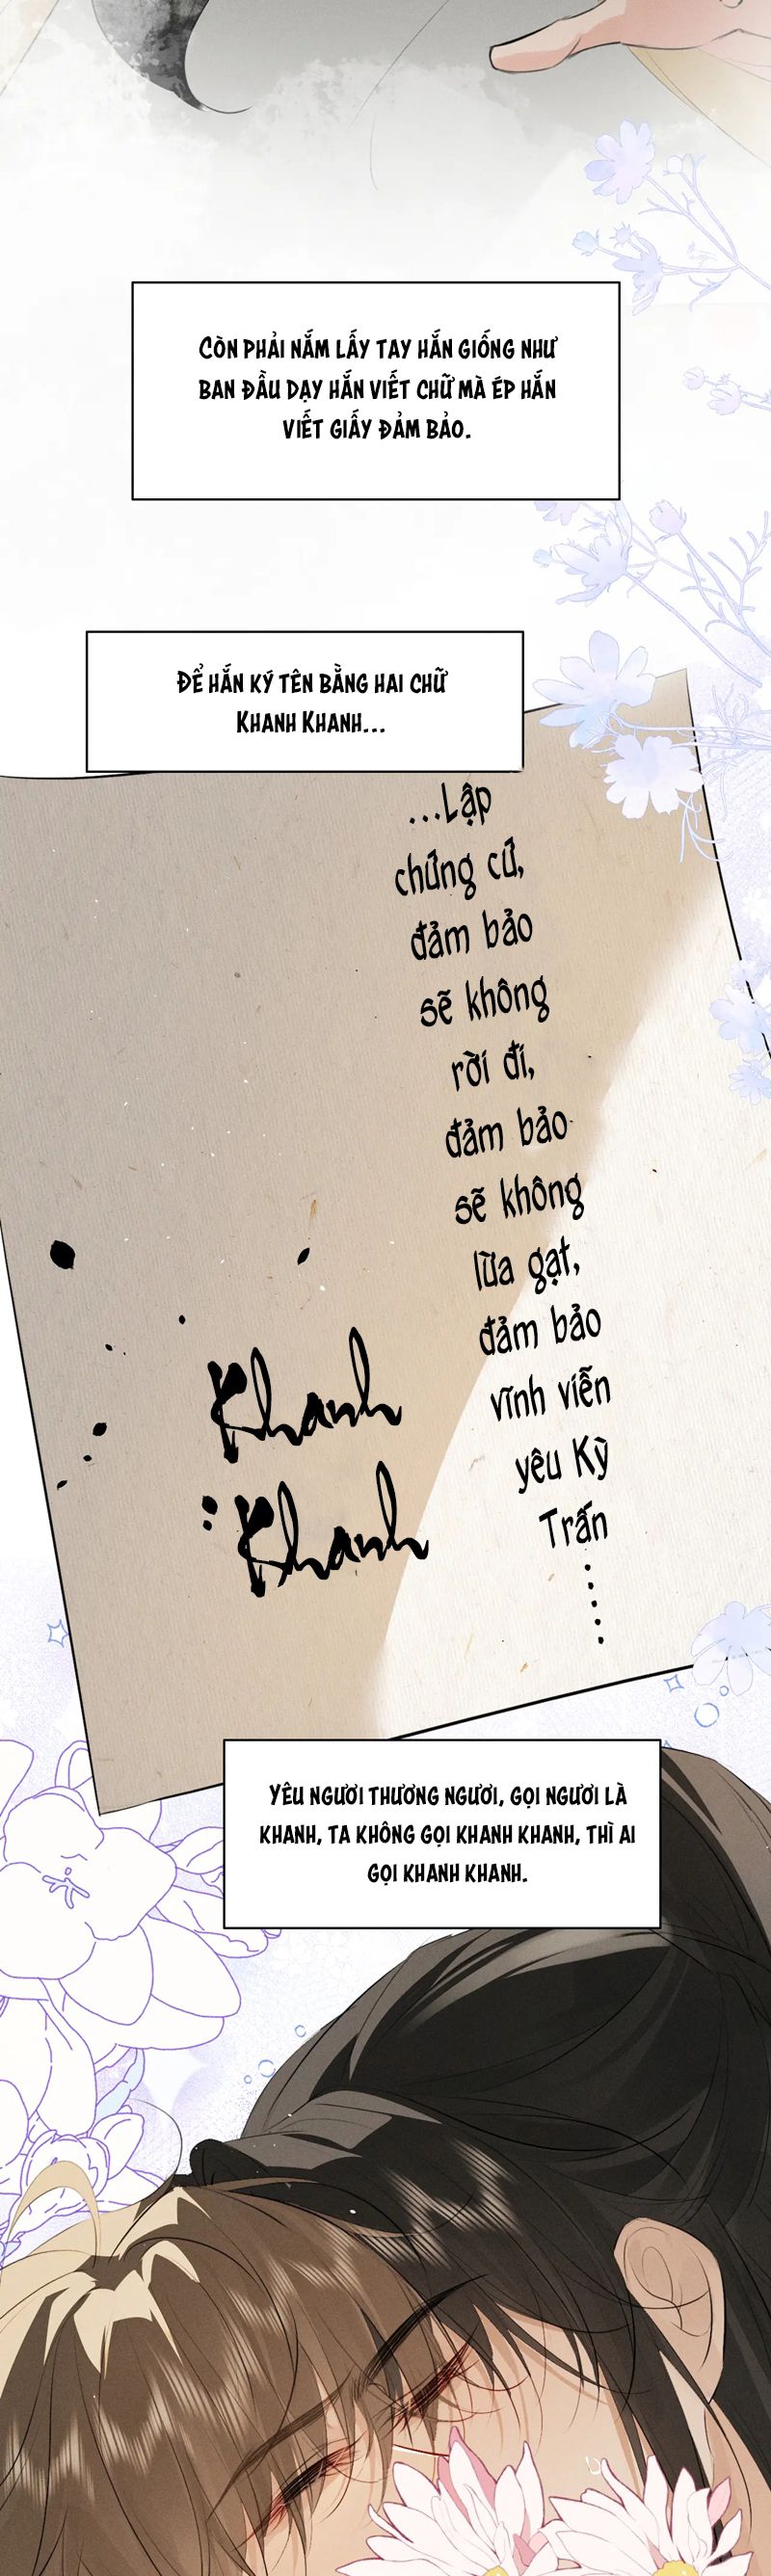 CÒN PHẢI NẮM LẤY TAY HẮN GIỐNG NHƯ
BAN ĐẦU DẠY HẮN VIẾT CHỮ MÀ ÉP HẮN
VIẾT GIẤY ĐẢM BẢO.
ĐỂ HẮN KÝ TÊN BẰNG HAI CHỮ
KHANH KHANH...
...Lập
chứng cứ,
đảm bảo
sẽ không
rời đi,
đảm bảo
sẽ không
lừa gạt,
đảm bảo
vĩnh viễn
yêu Kỳ
Trấn
.....
Khanh
Khanh
YÊU NGƯƠI THƯƠNG NGƯƠI, GỌI NGƯƠI LÀ
KHANH, TA KHÔNG GỌI KHANH KHANH, THÌ AI
GỌI KHANH KHANH.